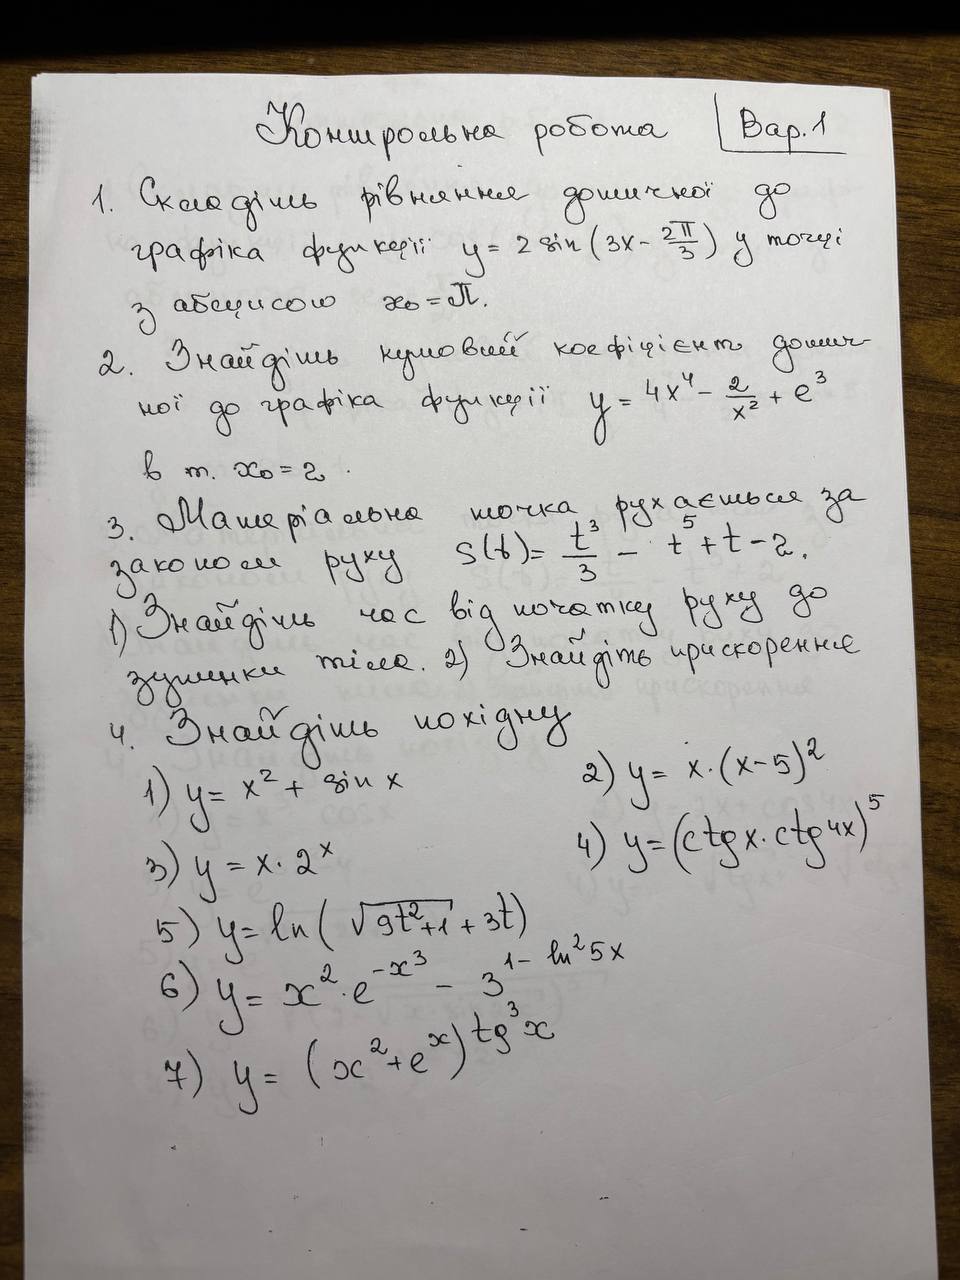 Контрольна робота Вар. 1
1. Складіть рівняння дотичної до
графіка функції y = 2 sin (3x - 2π/3) у точці
з абсцисою x₀ = π.
2. Знайдіть кутовий коефіцієнт дотич-
ної до графіка функції y = 4x⁴ - 2/x² + e³
в т. x₀ = 2.
3. Матеріальна точка рухається за
законом руху S(t) = t³/3 - t⁵ + t - 2.
1) Знайдіть час від початку руху до
зупинки тіла. 2) Знайдіть прискорення
4. Знайдіть похідну
1) y = x² + sin x 2) y = x·(x-5)²
3) y = x·2ˣ 4) y = (ctg x · ctg 4x)⁵
5) y = ln(√(9t²+1) + 3t)
6) y = x²·e^(-x³) - 3^(1 - ln²5x)
7) y = (x² + eˣ)^(tg³x)